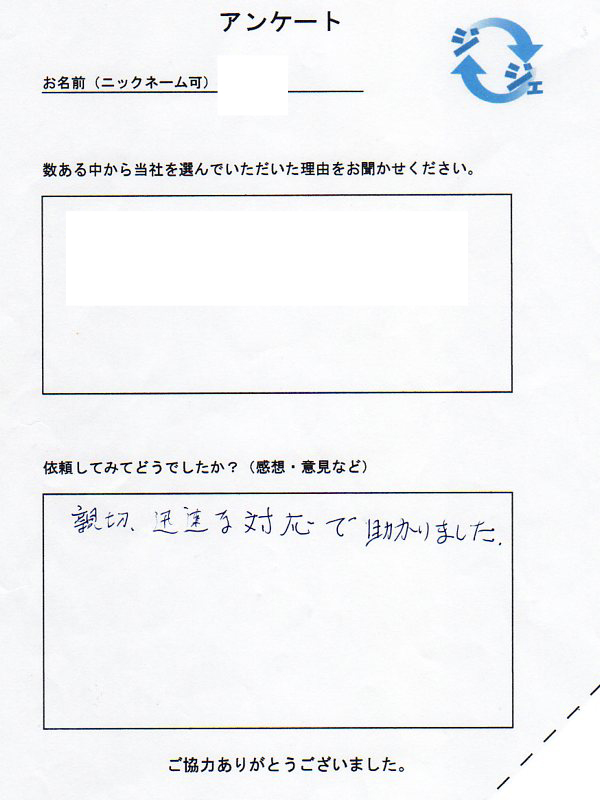 アンケート
ジジェ
お名前（ニックネーム可）
数ある中から当社を選んでいただいた理由をお聞かせください。
依頼してみてどうでしたか？（感想・意見など）
親切、迅速な対応で助かりました.
ご協力ありがとうございました。